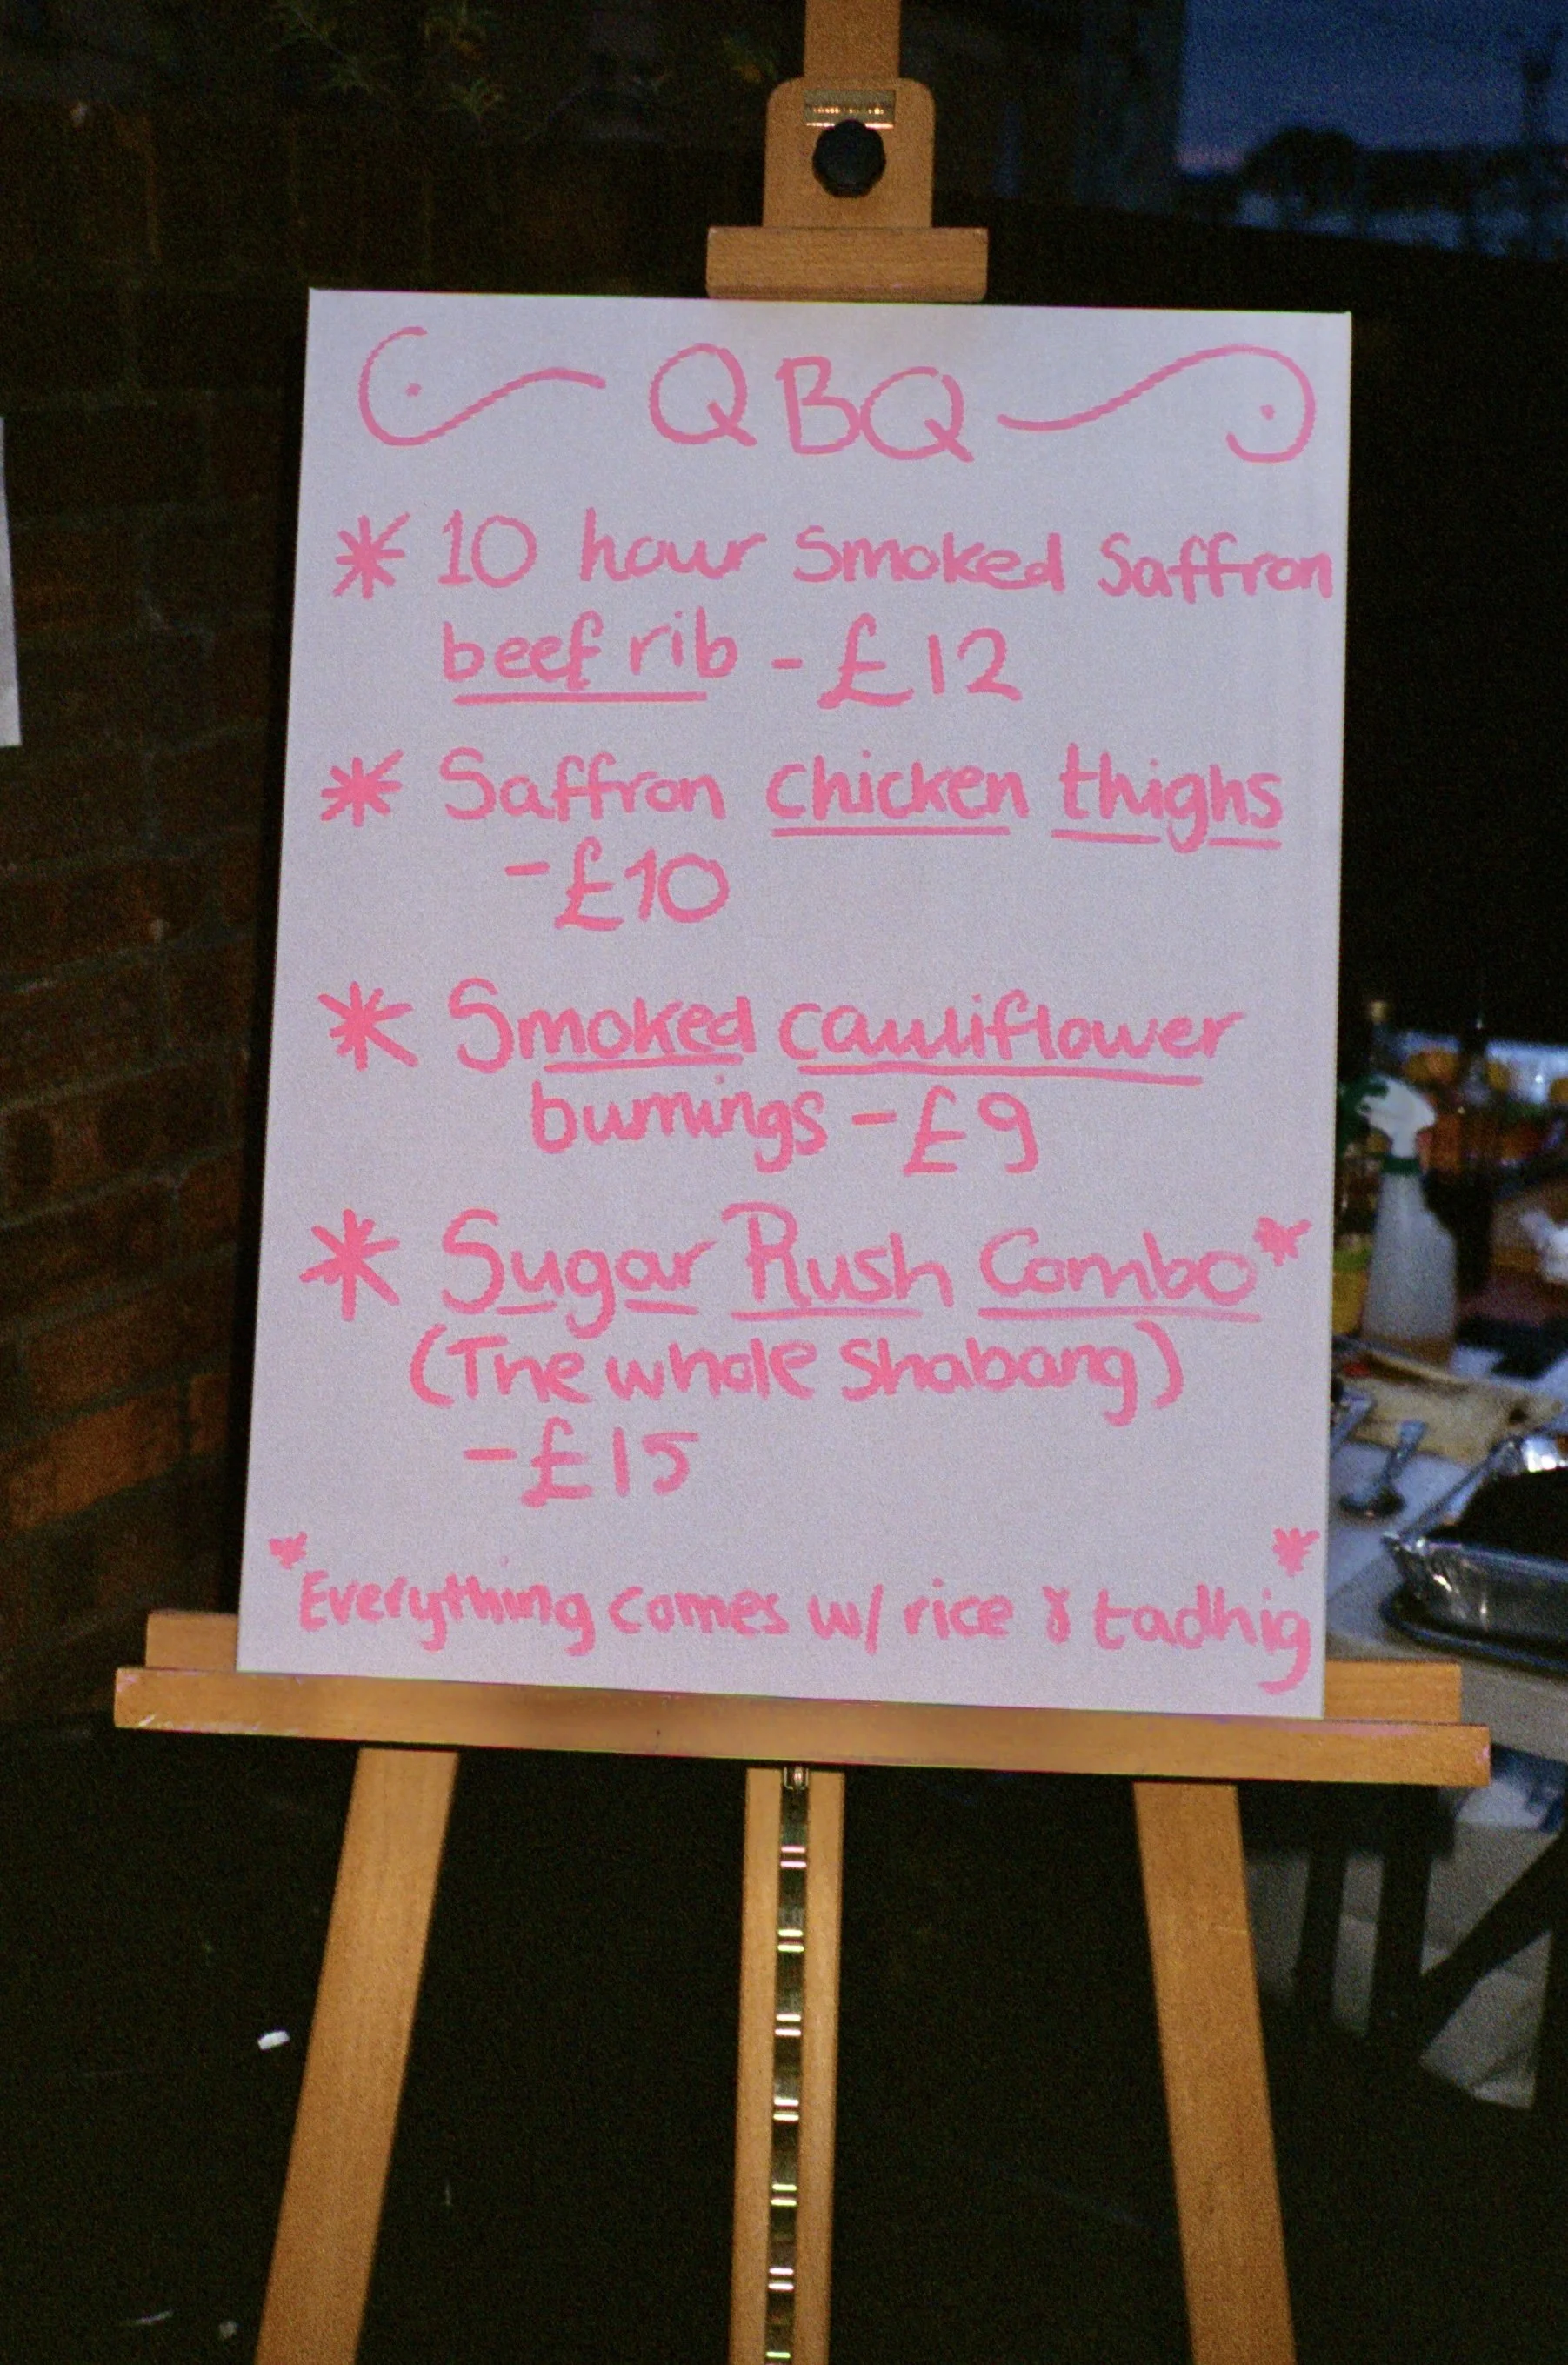 QBQ
* 10 hour Smoked Saffron
beef rib - £12
* Saffron chicken thighs
- £10
* Smoked cauliflower
burnings - £9
* Sugar Rush Combo*
(The whole Shabang)
- £15
* *
Everything comes w/ rice & tadhig